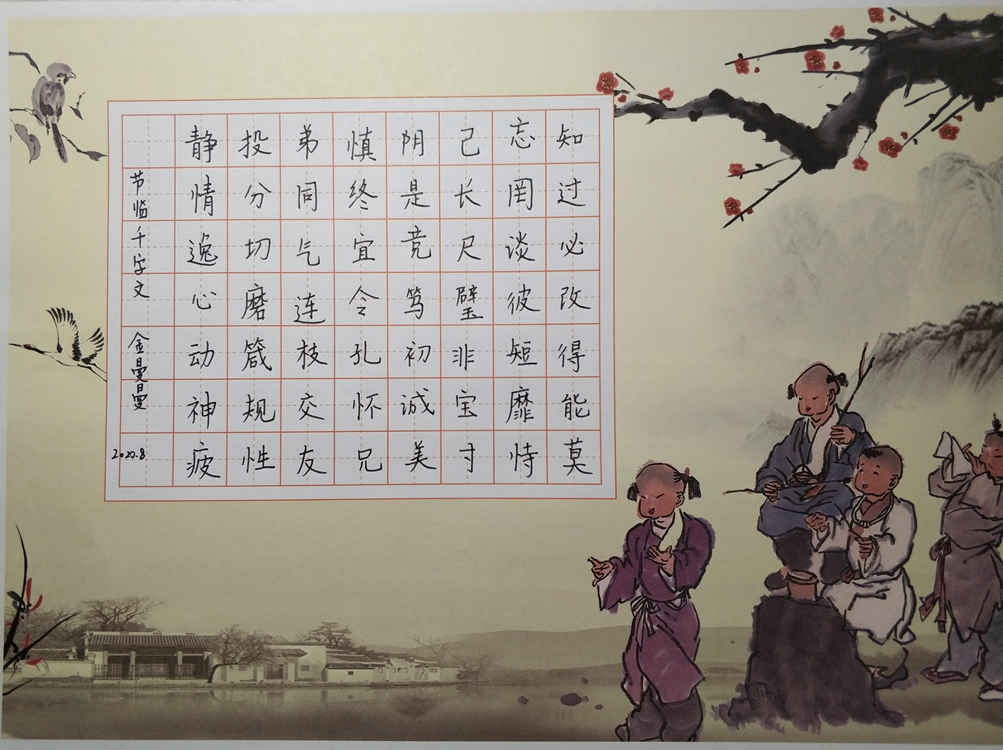 知过必改得能莫
忘罔谈彼短靡恃
己长尺璧非宝寸
阴是竞笃初诚美
慎终宜令孔怀兄
弟同气连枝交友
投分切磨箴规性
静情逸心动神疲
节临千字文 金曼曼
2020.8